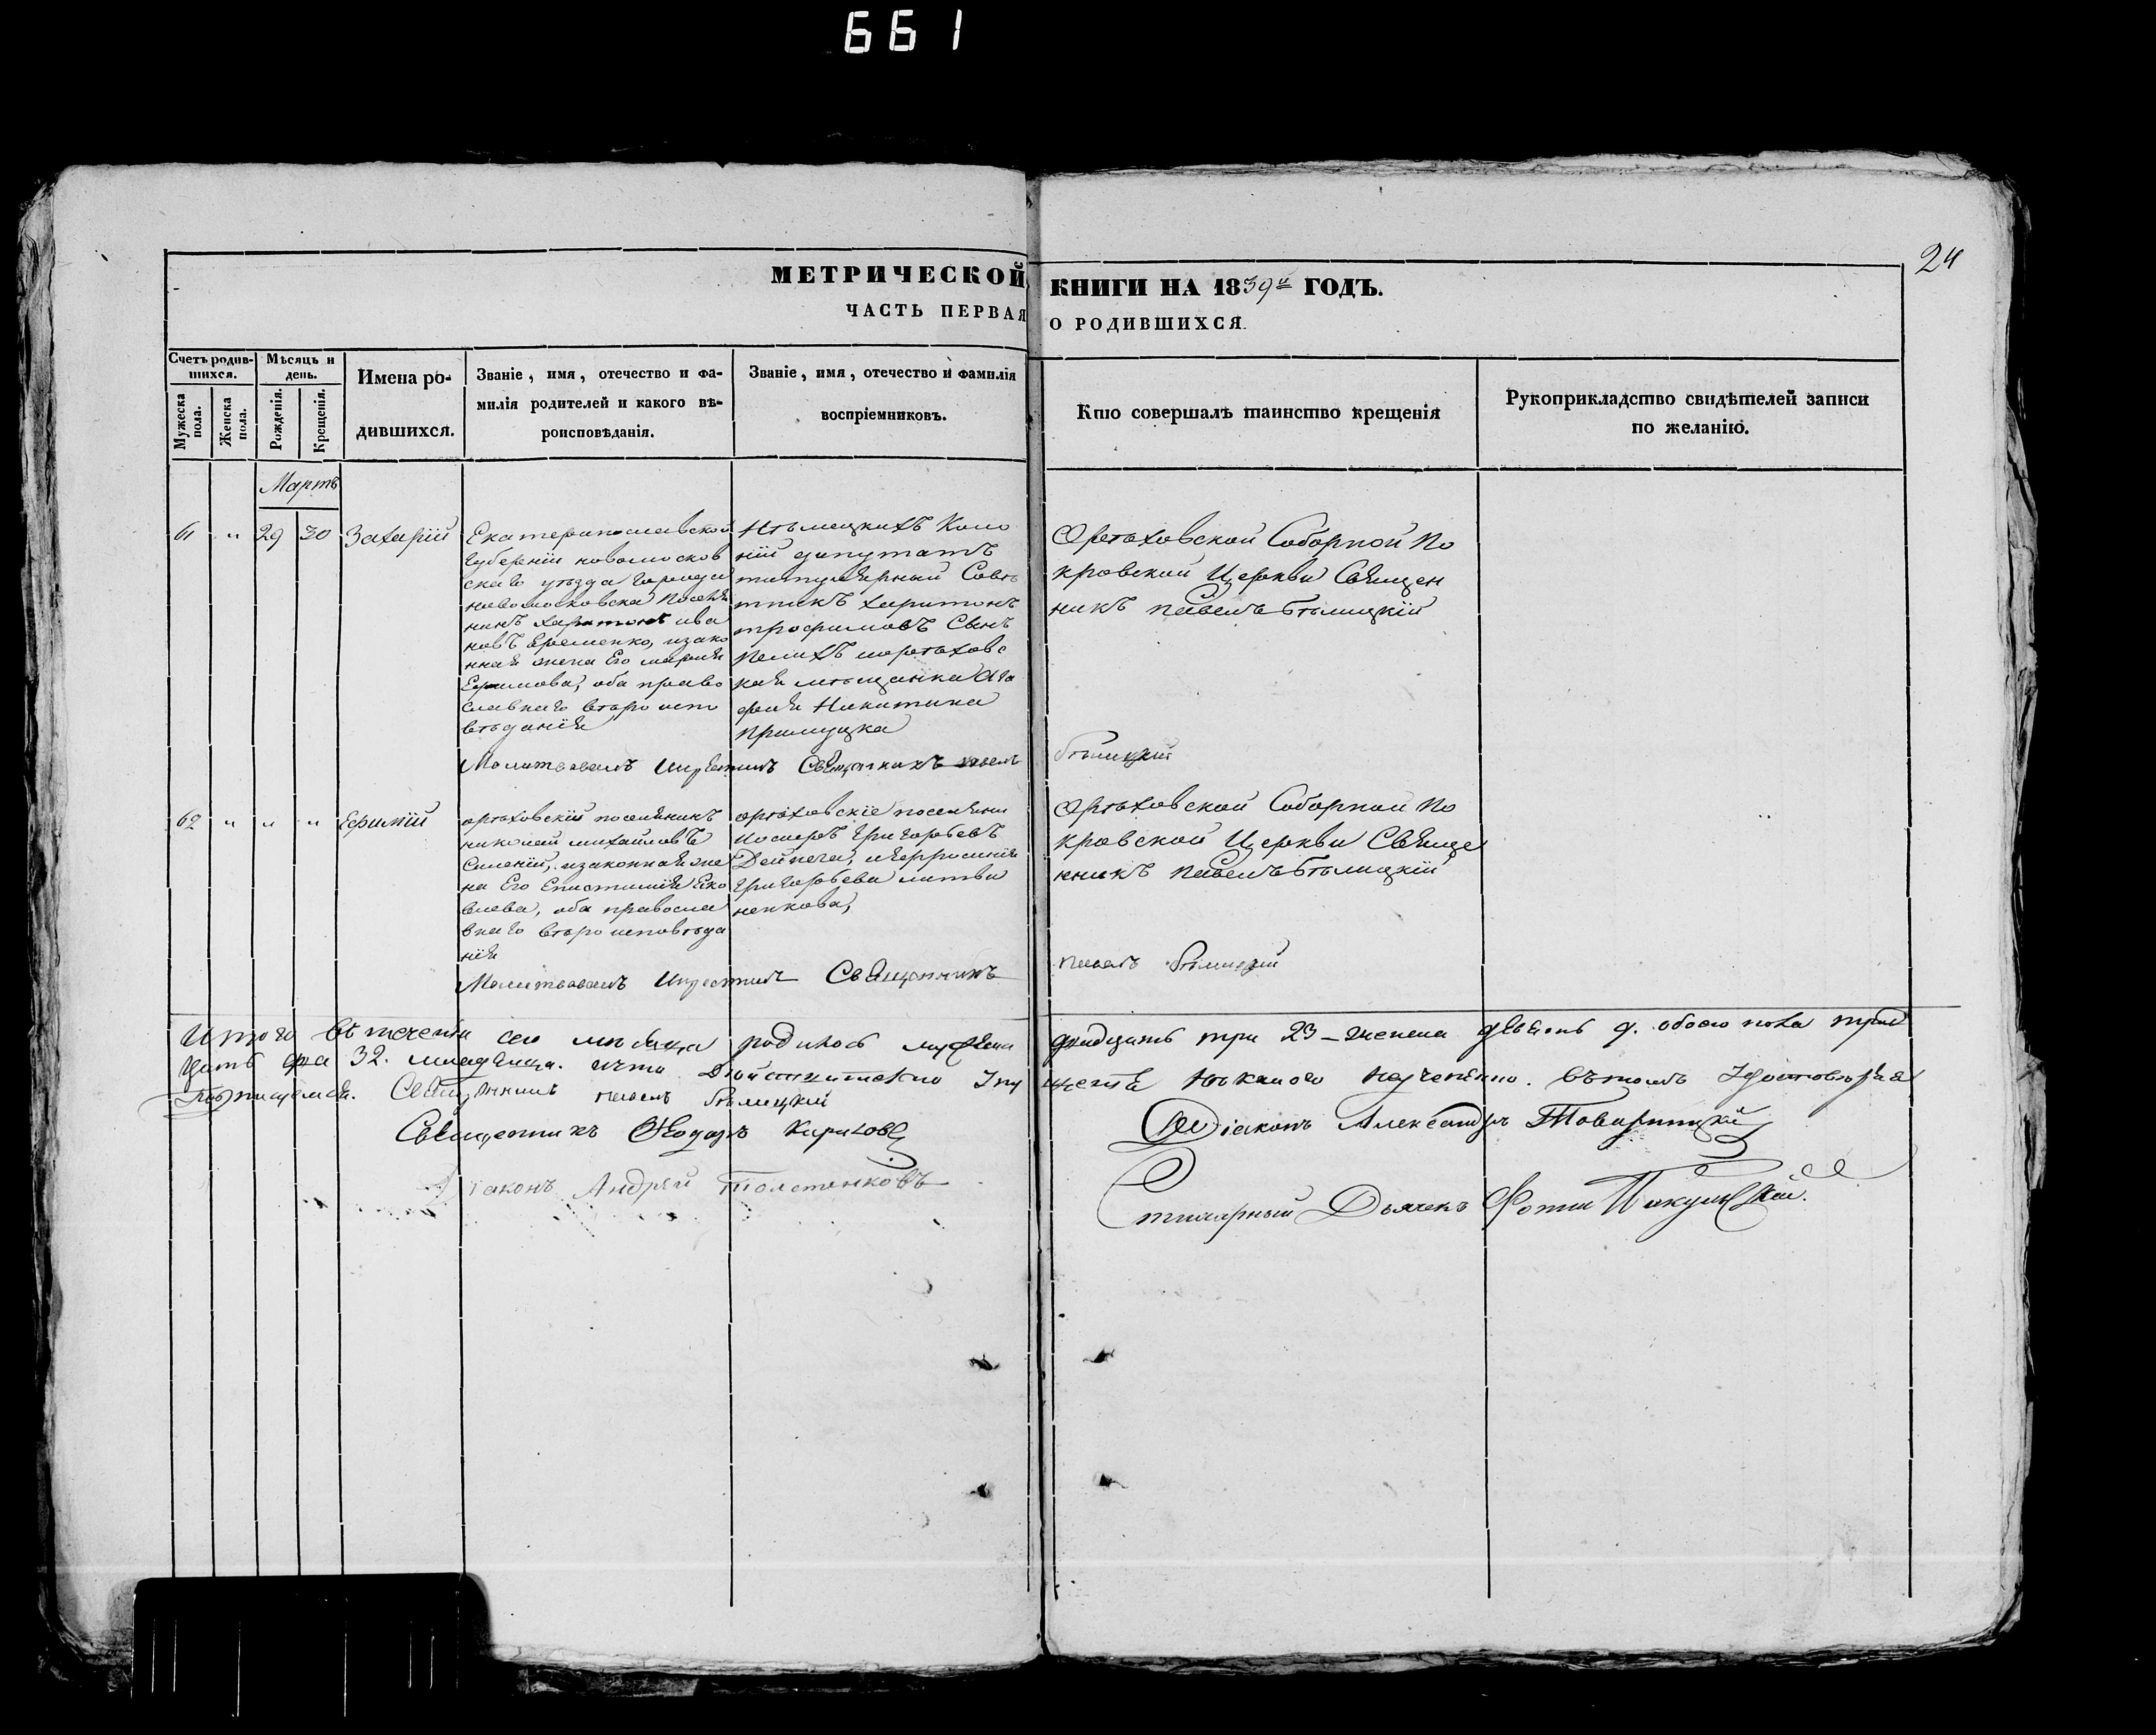 661
24
МЕТРИЧЕСКОЙ КНИГИ НА 1839й ГОДЪ.
ЧАСТЬ ПЕРВАЯ О РОДИВШИХСЯ.
Счетъ родив-
шихся.
Мужеска
пола.
Женска
пола.
Мѣсяцъ и
день.
Рожденія.
Крещенія.
Имена ро-
дившихся.
Званіе, имя, отечество и фа-
милія родителей и какого вѣ-
роисповѣданія.
Званіе, имя, отечество и фамилія
воспріемниковъ.
Кто совершалъ таинство крещенія
Рукоприкладство свидѣтелей записи
по желанію.
Мартъ
61 " 29 30 Захарій
Екатеринославской
губерніи новомосков
скаго уѣзда города
новомосковска поселя
нинъ харитонъ ива
новъ Еременко, изако
нная жена Его марія
Ефимова, оба право
славнаго вѣро испо
вѣданія
Нѣмецкихъ Коло
ній депутатъ
титулярный Совѣ
тникъ харитонъ
трофимовъ Сынъ
Пелихъ иорѣховс
кая мѣщанка Ага
фія Никитина
Орѣховской Соборной По
кровской Церкви Священ
никъ павелъ бѣлицкій
Молитвовалъ Икрестилъ Священникъ павелъ бѣлицкій
62 " " " Ефимій
орѣховскій поселянинъ
николай михайловъ
изаконная же
на Его Епистимія Яко
влева, оба правосла
внаго вѣро исповѣда
нія
орѣховскіе поселяни
Григорьевъ
Григорьева литви
ненкова,
Орѣховской Соборной По
кровской Церкви Свяще
нникъ павелъ бѣлицкій
Молитвовалъ Икрестилъ Священникъ павелъ бѣлицкій
Итого въ теченіи сего мѣсяца родилось мужеска двадцать три 23 женска девять 9. обоего пола трид
цать два 32. младенца. что дѣйствительно
Священникъ павелъ бѣлицкій
Священникъ Ѳеодоръ
Діаконъ Андрей Толстенковъ
Діаконъ Александръ
Стихарный Дьячекъ Фотій